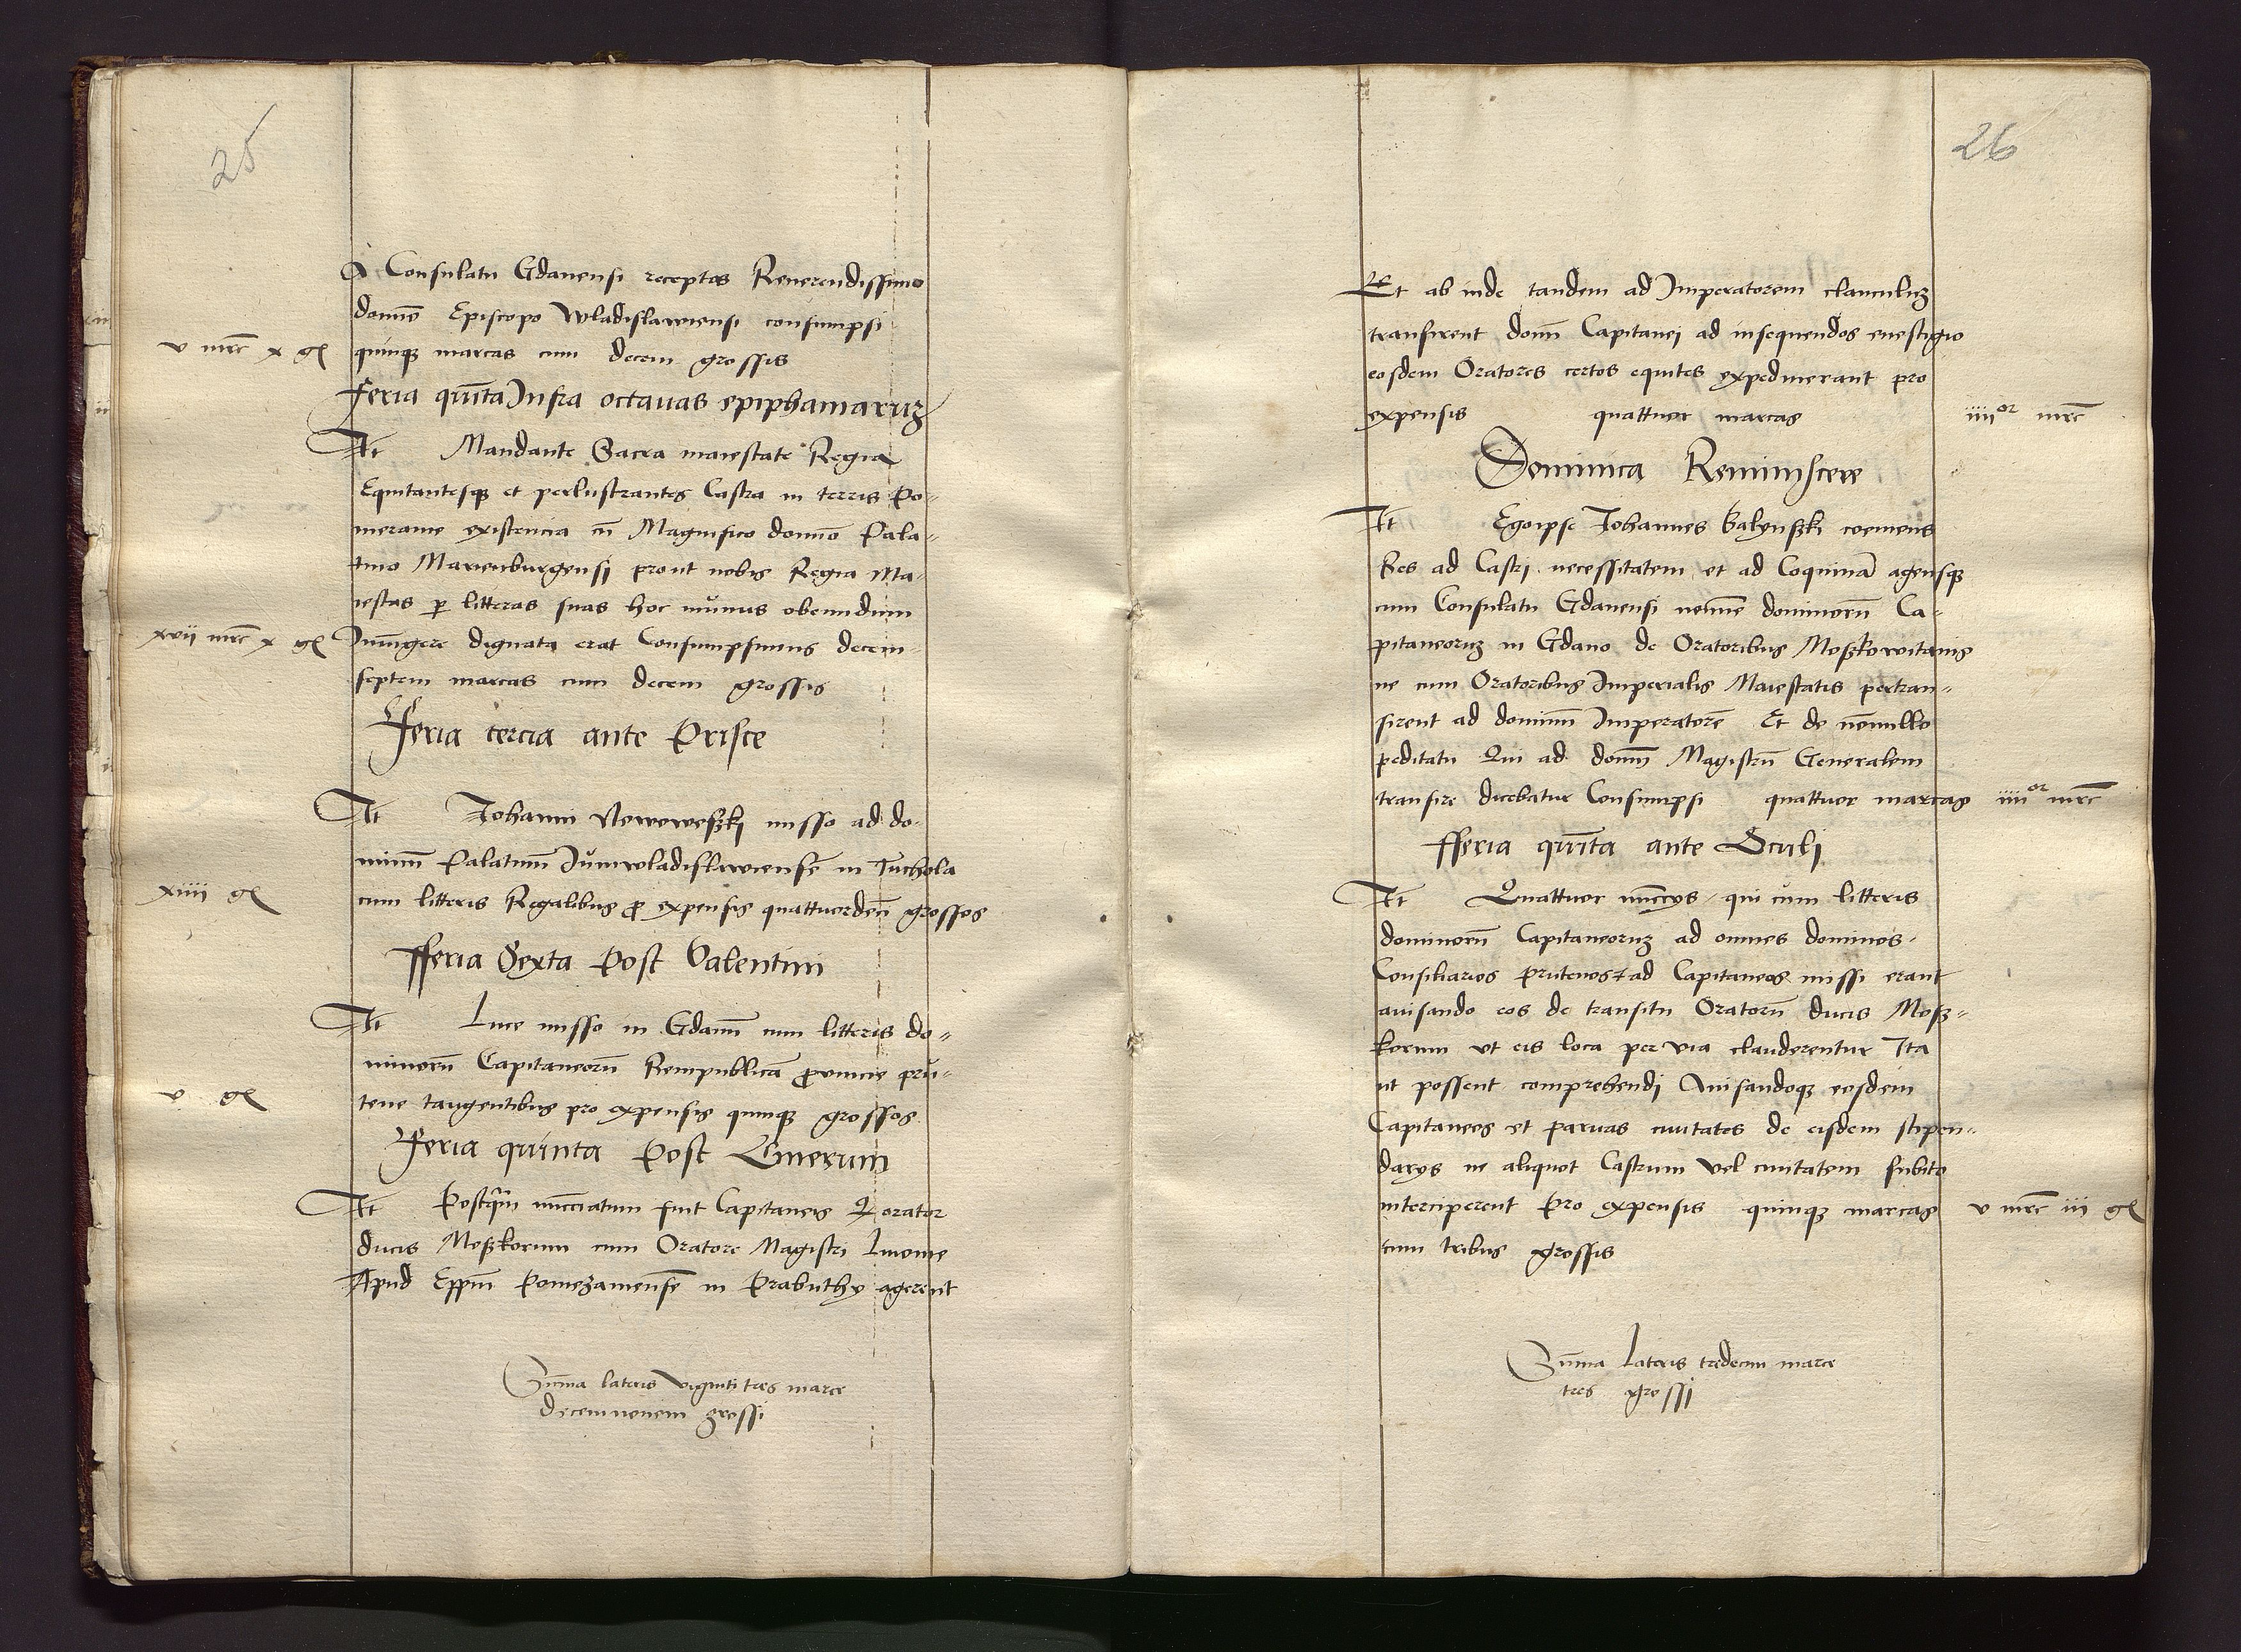 25
A Consulatu Gdanensi receptas Reverendissimo
domino Episcopo Wladislawiensi consumpsi
v mrc x gl quinqz marcas cum decem grossis
Feria quinta Infra octauas epiphaniaruz
It Mandante Sacra maiestate Regia
Equitantesqz et perlustrantes Castra in terris Po-
meranie existencia cum Magnifico domino Pala-
tino Marienburgensi prout nobis Regia Ma-
iestas per litteras suas hoc munus obeundum
xvii mrc x gl Iniungere dignata erat Consumpsimus decem-
septem marcas cum decem grossis
Feria tercia ante Prisce
It Johanni Noweweszki misso ad do-
minum Palatinum Juniwladislawiensem in Tuchola
xiiii gl cum litteris Regalibus pro expensis quattuordecim grossos
fferia Sexta Post Valentini
It Luce misso in Gdanum cum litteris do-
minorum Capitaneorum Rempublicam prouincie pru-
v gl tene tangentibus pro expensis quinqz grossos
Feria quinta Post Cinerum
It Postquam nunctiatum fuit Capitaneis Quod orator
ducis Moszkorum cum Oratore Magistri Liuonie
Apud Eppm Pomezaniensem in Prabuthy agerent
Summa lateris viginti tres marce
decemnouem grossi
26
Et ab inde tandem ad Imperatorem clanculuz
transirent domini Capitanei ad insequendos euestigio
eosdem Oratores certos equites expediuerant pro
expensis quattuor marcas iiii or mrc
Dominica Reminiscere
It Egoipse Johannes Balynszki coemens
Res ad Castri necessitatem et ad Coquinam agensqz
cum Consulatu Gdanensi nomine dominorum Ca-
pitaneoruz in Gdano de Oratoribus Moszkowitanis
ne cum Oratoribus Imperialis Maiestatis pertran-
sirent ad dominum Imperatorem Et de nonnullo
peditatu Qui ad dominum Magistrum Generalem
transire dicebatur Consumpsi quattuor marcas iiii or mrc
fferia quinta ante Oculi
It Quattuor nunccys qui cum litteris
dominorum Capitaneoruz ad omnes dominos
Consiliarios prutenos et ad Capitaneos missi erant
auisando eos de transitu Oratorum ducis Mosz-
korum vt eis loca per via clauderentur Ita
ut possent comprehendi Auisandoqz eosdem
Capitaneos et paruas ciuitates de eisdem stipen-
darys ne aliquot Castrum vel ciuitatem subito
interciperent Pro expensis quinqz marcas v mrc iii gl
cum tribus grossis
Summa lateris tredecim marce
tres grossi